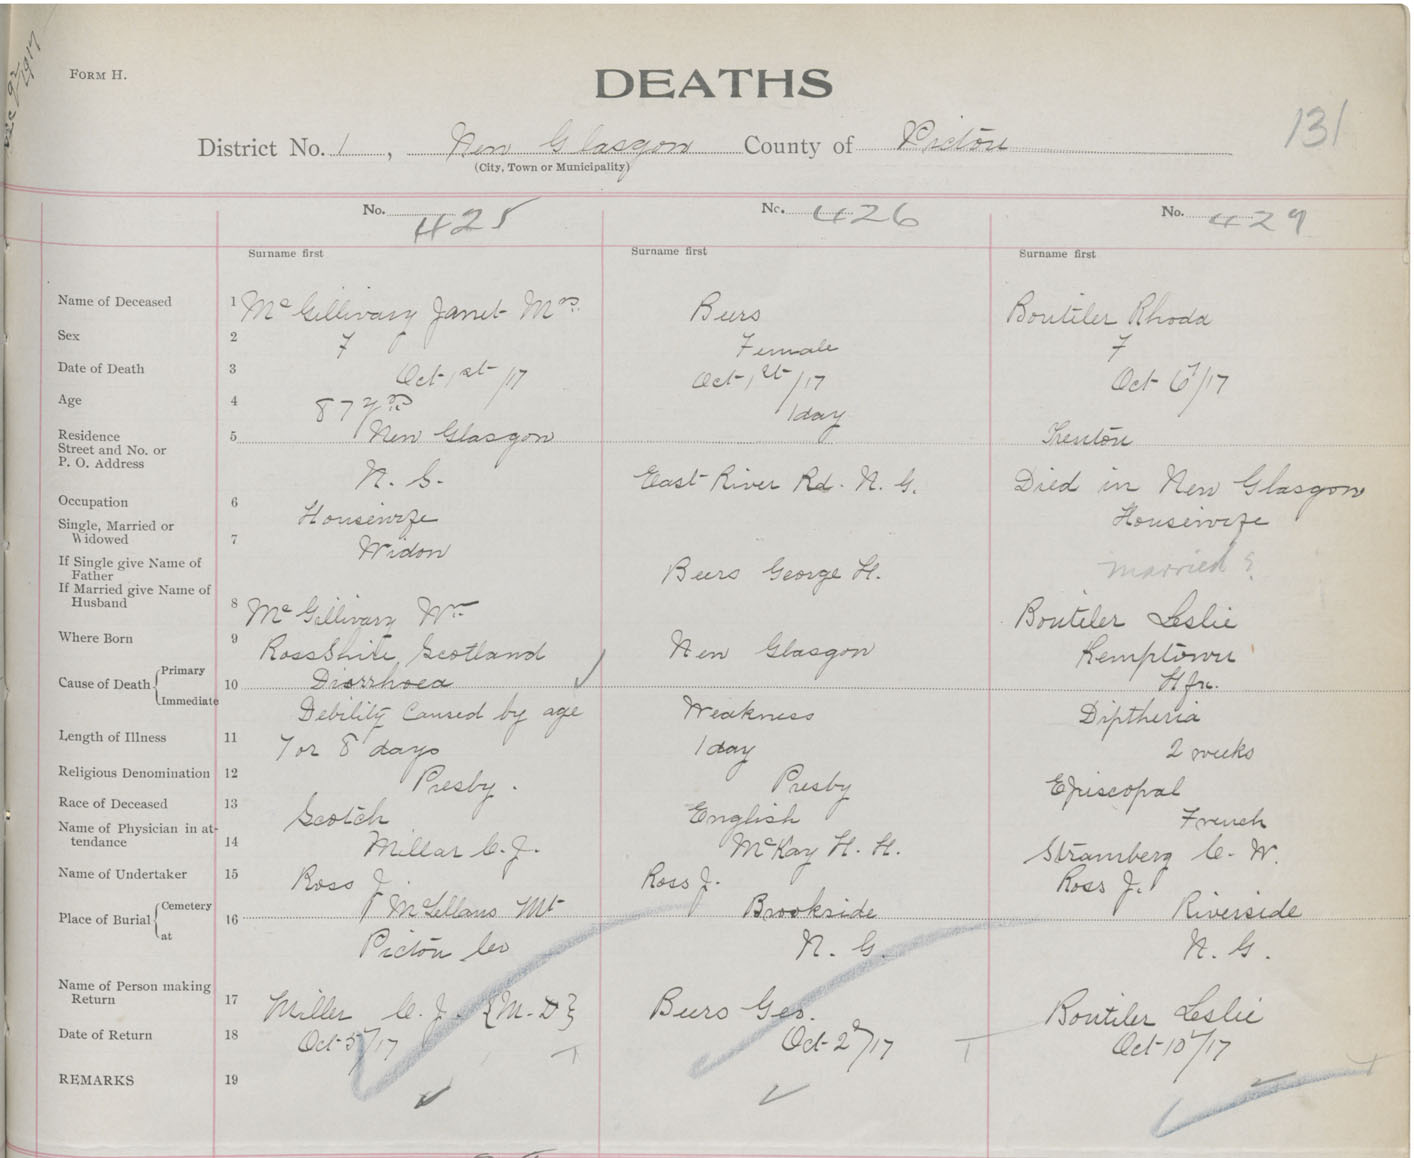 Dec 9th 1917
FORM H.
DEATHS
131
District No. 1, New Glasgow County of Pictou
(City, Town or Municipality)
No. 425 No. 426 No. 427
Surname first Surname first Surname first
Name of Deceased 1 McGillivary Janet Mrs. Beers Boutiler Rhoda
Sex 2 F Female F
Date of Death 3 Oct 1st/17 Oct 1st/17 Oct 6/17
Age 4 87 yrs 1 day
Residence 5 New Glasgow Trenton
Street and No. or
P. O. Address N. S. East River Rd. N. G. Died in New Glasgow
Occupation 6 Housewife Housewife
Single, Married or
Widowed 7 Widow married ?
If Single give Name of
Father Beers George H.
If Married give Name of
Husband 8 McGillivary Wm Boutiler Leslie
Where Born 9 RossShire Scotland New Glasgow Kemptown
Cause of Death Primary 10 Diorrhoea ✓ Hfx.
Immediate Debility Caused by age Weakness Diptheria
Length of Illness 11 7 or 8 days 1 day 2 weeks
Religious Denomination 12 Presby. Presby Episcopal
Race of Deceased 13 Scotch English French
Name of Physician in at-
tendance 14 Millar C. J. McKay H. H. Stramberg C. W.
Name of Undertaker 15 Ross J. Ross J. Ross J.
Place of Burial Cemetery 16 McLellans Mt Brookside Riverside
at Pictou Co N. G. N. G.
Name of Person making
Return 17 Miller C. J. {M. D} Beers Geo. Boutiler Leslie
Date of Return 18 Oct 5/17 Oct 2/17 Oct 10/17
REMARKS 19